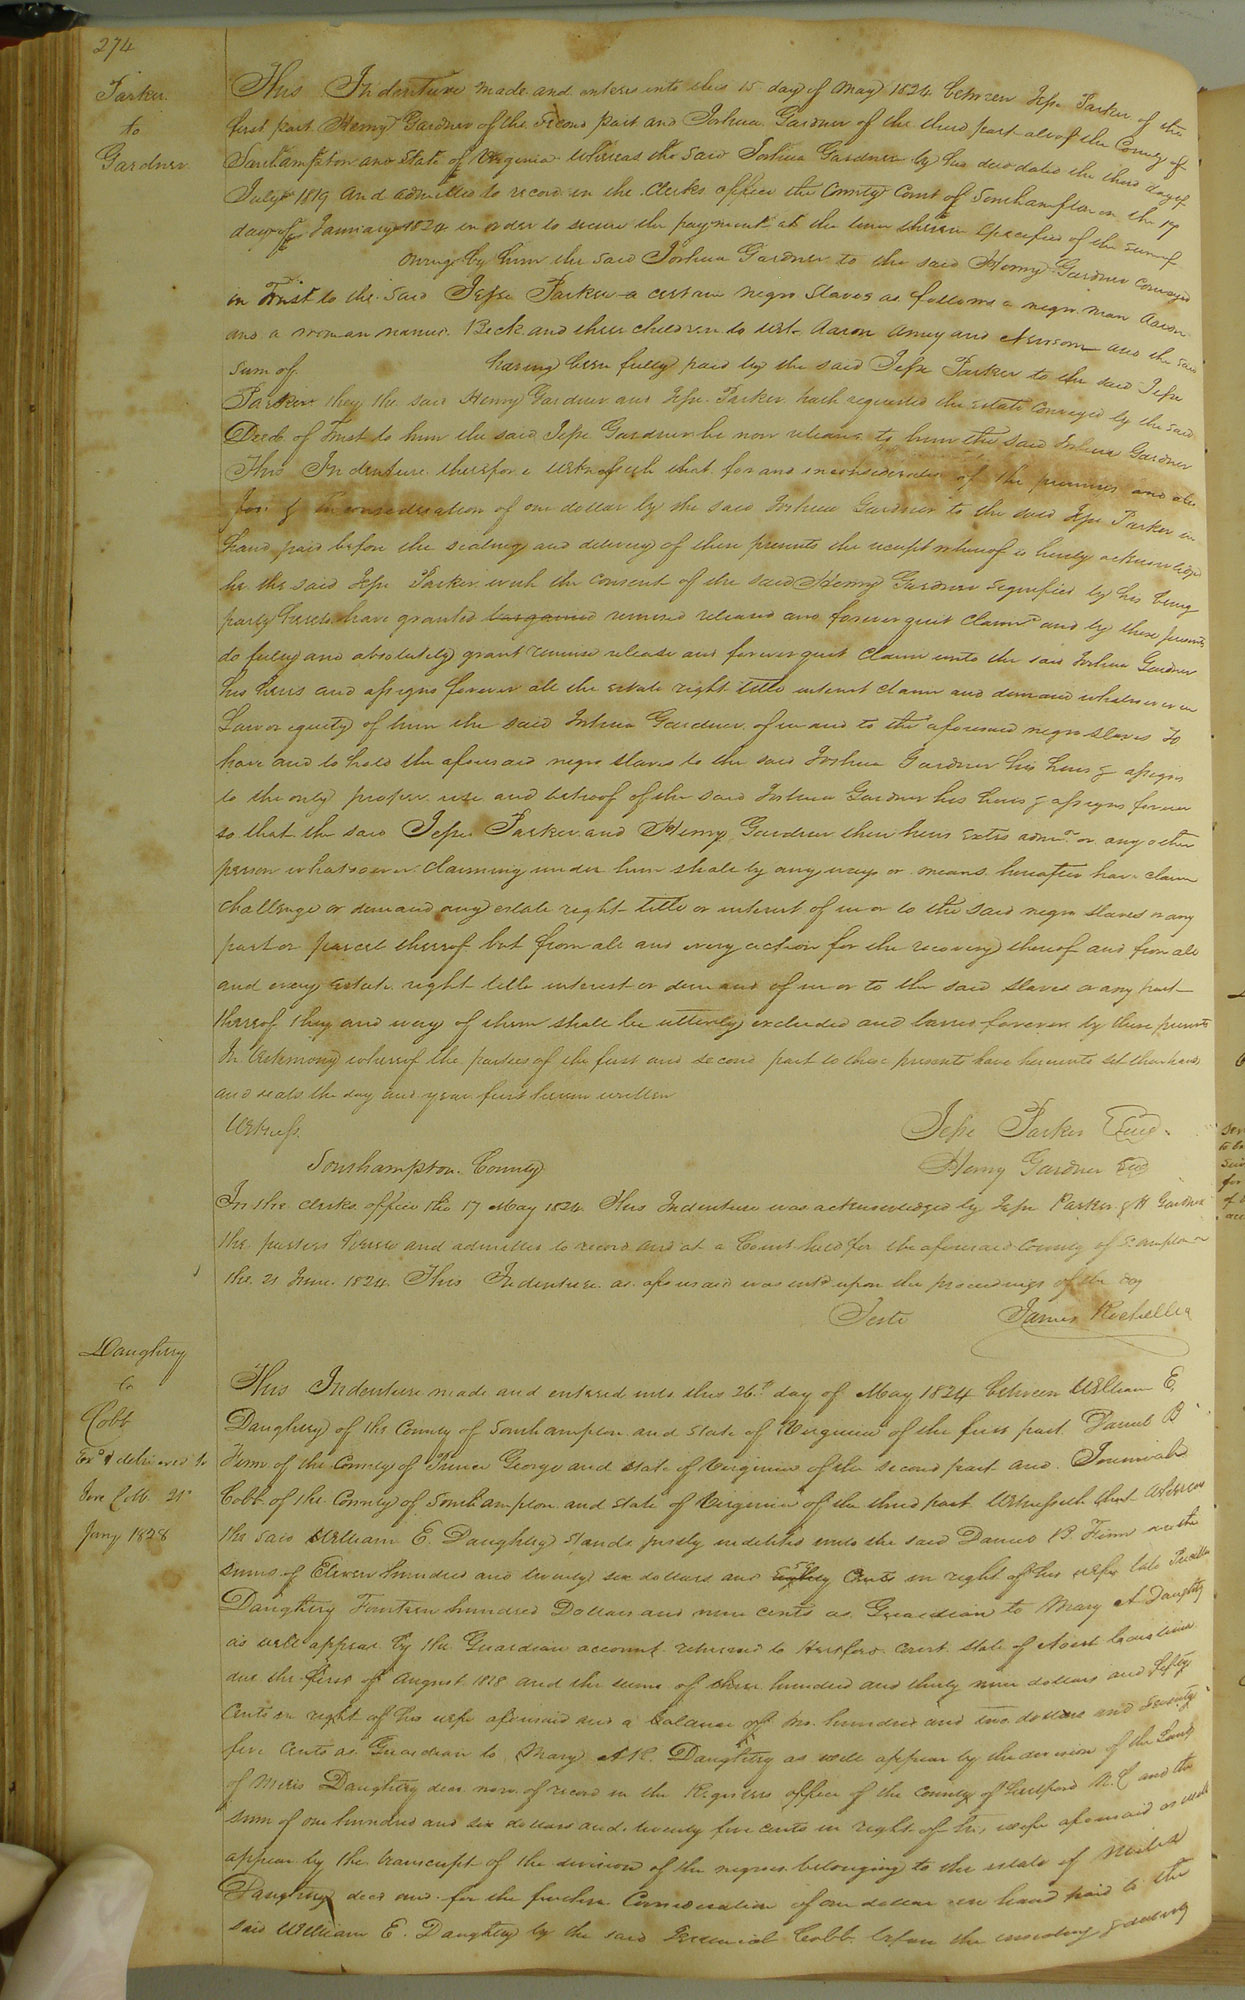 274
Parker
to
Gardner
This Indenture made and enterd into this 15 day of May 1824 between Jesse Parker of the
first part Henry Gardner of the second part and Joshua Gardner of the third part all of the County of
Southampton and State of Virginia Whereas the said Joshua Gardner by his deed dated the third day of
July 1819 and admitted to record in the Clerks office the County Court of Southampton on the 17
day of January 1820 in order to secure the payment at the time therein specified of the sum of
owing by him the said Joshua Gardner to the said Henry Gardner conveyed
in Trust to the said Jesse Parker a certain negro Slaves as follows a negro man Aaron
and a woman named Beck and three children to wit Aaron Amey and Newsom and the said
sum of having been fully paid by the said Jesse Parker to the said Jesse
Parker they the said Henry Gardner and Jesse Parker hath requested the estate conveyed by the said
Deed of Trust to him the said Jesse Gardner be now released to him the said Joshua Gardner
This Indenture therefore witnesseth that for and in consideration of the premises and also
for & in consideration of one dollar by the said Joshua Gardner to the said Jesse Parker in
hand paid before the sealing and delivery of these presents the receipt whereof is hereby acknowledged
he the said Jesse Parker with the consent of the said Henry Gardner signified by his being
party hereto have granted bargained remised released and forever quit claimd and by these presents
do fully and absolutely grant remise release and forever quit claim unto the said Joshua Gardner
his heirs and assigns forever all the estate right title interest claim and demand whatsoever in
Law or equity of him the said Joshua Gardner of in and to the aforesaid negro slaves To
have and to hold the aforesaid negro slaves to the said Joshua Gardner his heirs & assigns
to the only proper use and behoof of the said Joshua Gardner his heirs & assigns forever
so that the said Jesse Parker and Henry Gardner their heirs Extrs admrs or any other
person whatsoever claiming under him shall by any ways or means hereafter have claim
challenge or demand any estate right title or interest of in or to the said negro slaves or any
part or parcel thereof but from all and every action for the recovery thereof and from all
and every estate right title interest or demand of in or to the said slaves or any part
thereof they and every of them shall be utterly excluded and barred forever by these presents
In testimony whereof the parties of the first and second part to these presents have hereunto set their hands
and seals the day and year first herein written
Witness
Jesse Parker Seal
Southampton County
Henry Gardner Seal
In the clerks office the 17 May 1824 This Indenture was acknowledged by Jesse Parker & H Gardner
the parties hereto and admitted to record and at a Court held for the aforesaid County of Southampton
the 21 June 1824 This Indenture as aforesaid was entd upon the proceedings of the day
Teste James Rochelle
Daughtry
to
Cobb
Exd & delivered to
Jere Cobb 21st
Jany 1828
This Indenture made and entered into this 26th day of May 1824 between William E.
Daughtry of the County of Southampton and State of Virginia of the first part Daniel B
of the County of Prince George and state of Virginia of the second part and
Cobb of the County of Southampton and State of Virginia of the third part Witnesseth that whereas
the said William E. Daughtry stands justly indebted unto the said Daniel B. in the
sums of Eleven hundred and twenty six dollars and Cents in right of his wife late
Daughtry Fourteen hundred Dollars and nine cents as Guardian to Mary A Daughtry
as will appear by the Guardian account returned to Hertford Court State of North Carolina
due the first of August 1818 and the sum of three hundred and thirty nine dollars and fifty
Cents in right of his wife aforesaid and a balance of one hundred and two dollars and seventy
five Cents as Guardian to Mary A R. Daughtry as will appear by the division of the Land
of Miles Daughtry decd now of record in the Registers office of the County of Hertford N. C and the
sum of one hundred and six dollars and twenty five cents in right of his wife aforesaid as will
appear by the transcript of the division of the negroes belonging to the estate of Miles
Daughtry decd and for the further Consideration of one dollar in hand paid to the
said William E. Daughtry by the said Cobb before the ensealing & delivery